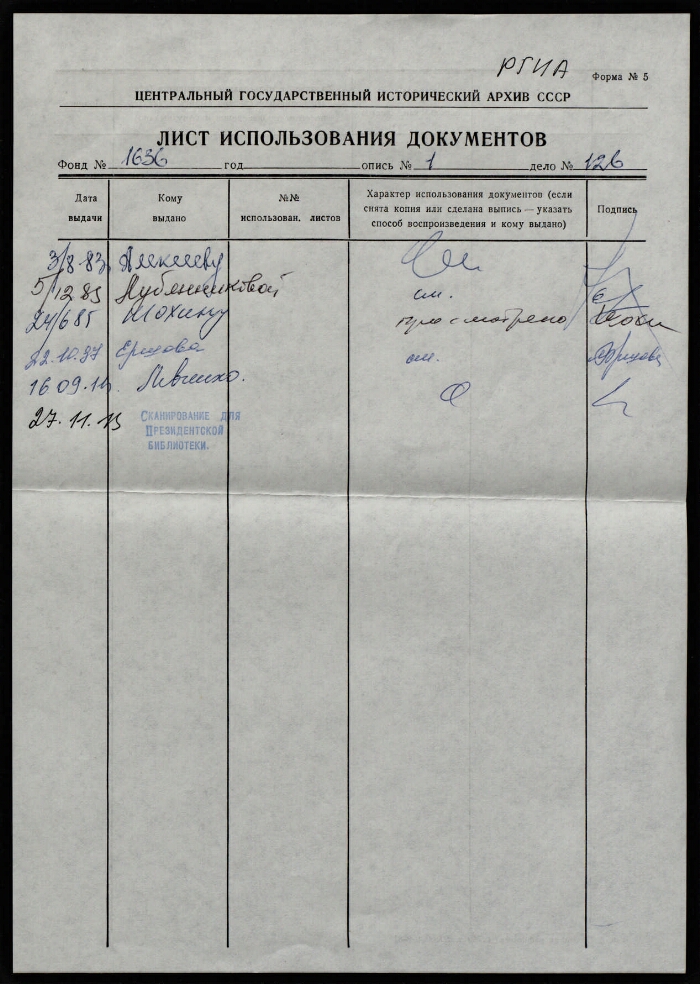 РГИА
Форма № 5
ЦЕНТРАЛЬНЫЙ ГОСУДАРСТВЕННЫЙ ИСТОРИЧЕСКИЙ АРХИВ СССР
ЛИСТ ИСПОЛЬЗОВАНИЯ ДОКУМЕНТОВ
Фонд № 1636 год опись № 1 дело № 126
Дата выдачи
Кому выдано
№№ использован. листов
Характер использования документов (если снята копия или сделана выпись — указать способ воспроизведения и кому выдано)
Подпись
3/8.83. Алексееву См.
5/12 85 Лубянниковой см.
24/6 85 Шохину просмотрено
22.10.87 Ершова см.
16.09. Левченко.
27.11.13 Сканирование для
Президентской
библиотеки.